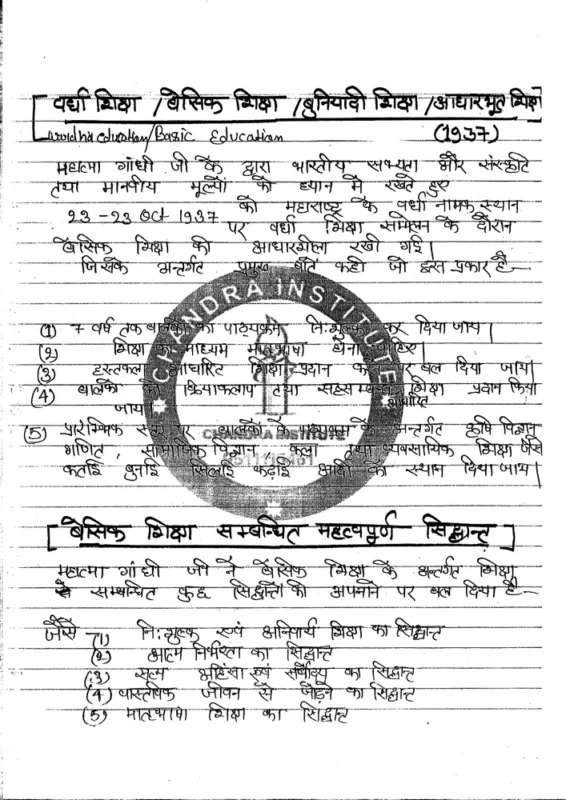 वर्धा शिक्षा /बेसिक शिक्षा /बुनियादी शिक्षा /आधारभूत शिक्षा
wardha education/Basic Education (1937)
महात्मा गांधी जी के द्वारा भारतीय सभ्यता और संस्कृति
तथा मानवीय मूल्यों को ध्यान में रखते हुए
23-23 Oct 1937 को महाराष्ट्र के वर्धा नामक स्थान
पर वर्धा शिक्षा सम्मेलन के दौरान
बेसिक शिक्षा की आधारशीला रखी गई।
जिसके अन्तर्गत प्रमुख बातें कही जो इस प्रकार है—
(1) 7 वर्ष तक बालकों का पाठ्यक्रम नि:शुल्क कर दिया जाय।
(2) शिक्षा का माध्यम मातृभाषा होना चाहिए।
(3) हस्तकला आधारित शिक्षा प्रदान करने पर बल दिया जाय।
(4) बालकों को क्रियाकलाप तथा शिक्षा प्रदान किया
जाय। आधारित
(5) प्रारम्भिक स्तर पर बालकों के पाठ्यक्रम के अन्तर्गत कृषि विज्ञान
गणित, सामाजिक विज्ञान, कला तथा व्यवसायिक शिक्षा जैसे
कताई बुनाई सिलाई कढ़ाई आदि को स्थान दिया जाय।
CHANDRA INSTITUTE
CHANDRA INSTITUTE
बेसिक शिक्षा सम्बन्धित महत्वपूर्ण सिद्धान्त
महात्मा गांधी जी ने बेसिक शिक्षा के अन्तर्गत शिक्षा
से सम्बन्धित कुछ सिद्धान्तों को अपनाने पर बल दिया है—
जैसे (1) नि:शुल्क एवं अनिवार्य शिक्षा का सिद्धान्त
(2) आत्म निर्भरता का सिद्धान्त
(3) सत्य अहिंसा एवं सर्वोदय का सिद्धान्त
(4) वास्तविक जीवन से जोड़ने का सिद्धान्त
(5) मातृभाषा शिक्षा का सिद्धान्त